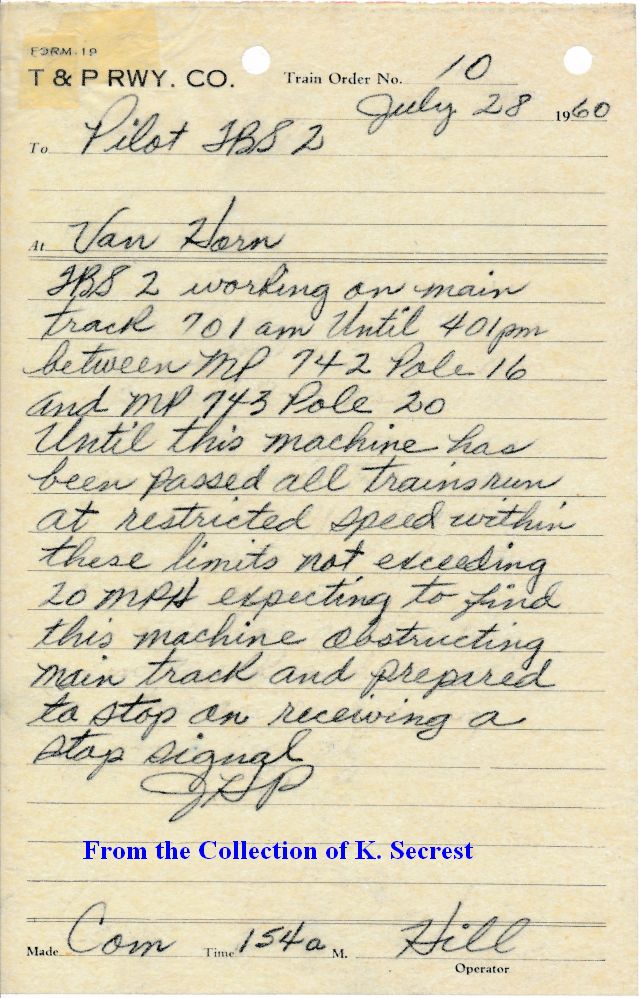 FORM 19
T & P RWY. CO. Train Order No. 10
July 28 1960
To Pilot TBS 2
At Van Horn
TBS 2 working on main
track 701 am Until 401pm
between MP 742 Pole 16
and MP 743 Pole 20
Until this machine has
been passed all trains run
at restricted speed within
these limits not exceeding
20 MPH expecting to find
this machine obstructing
main track and prepared
to stop on receiving a
stop signal
JGP
From the Collection of K. Secrest
Made Com Time 154a M. Hill
Operator